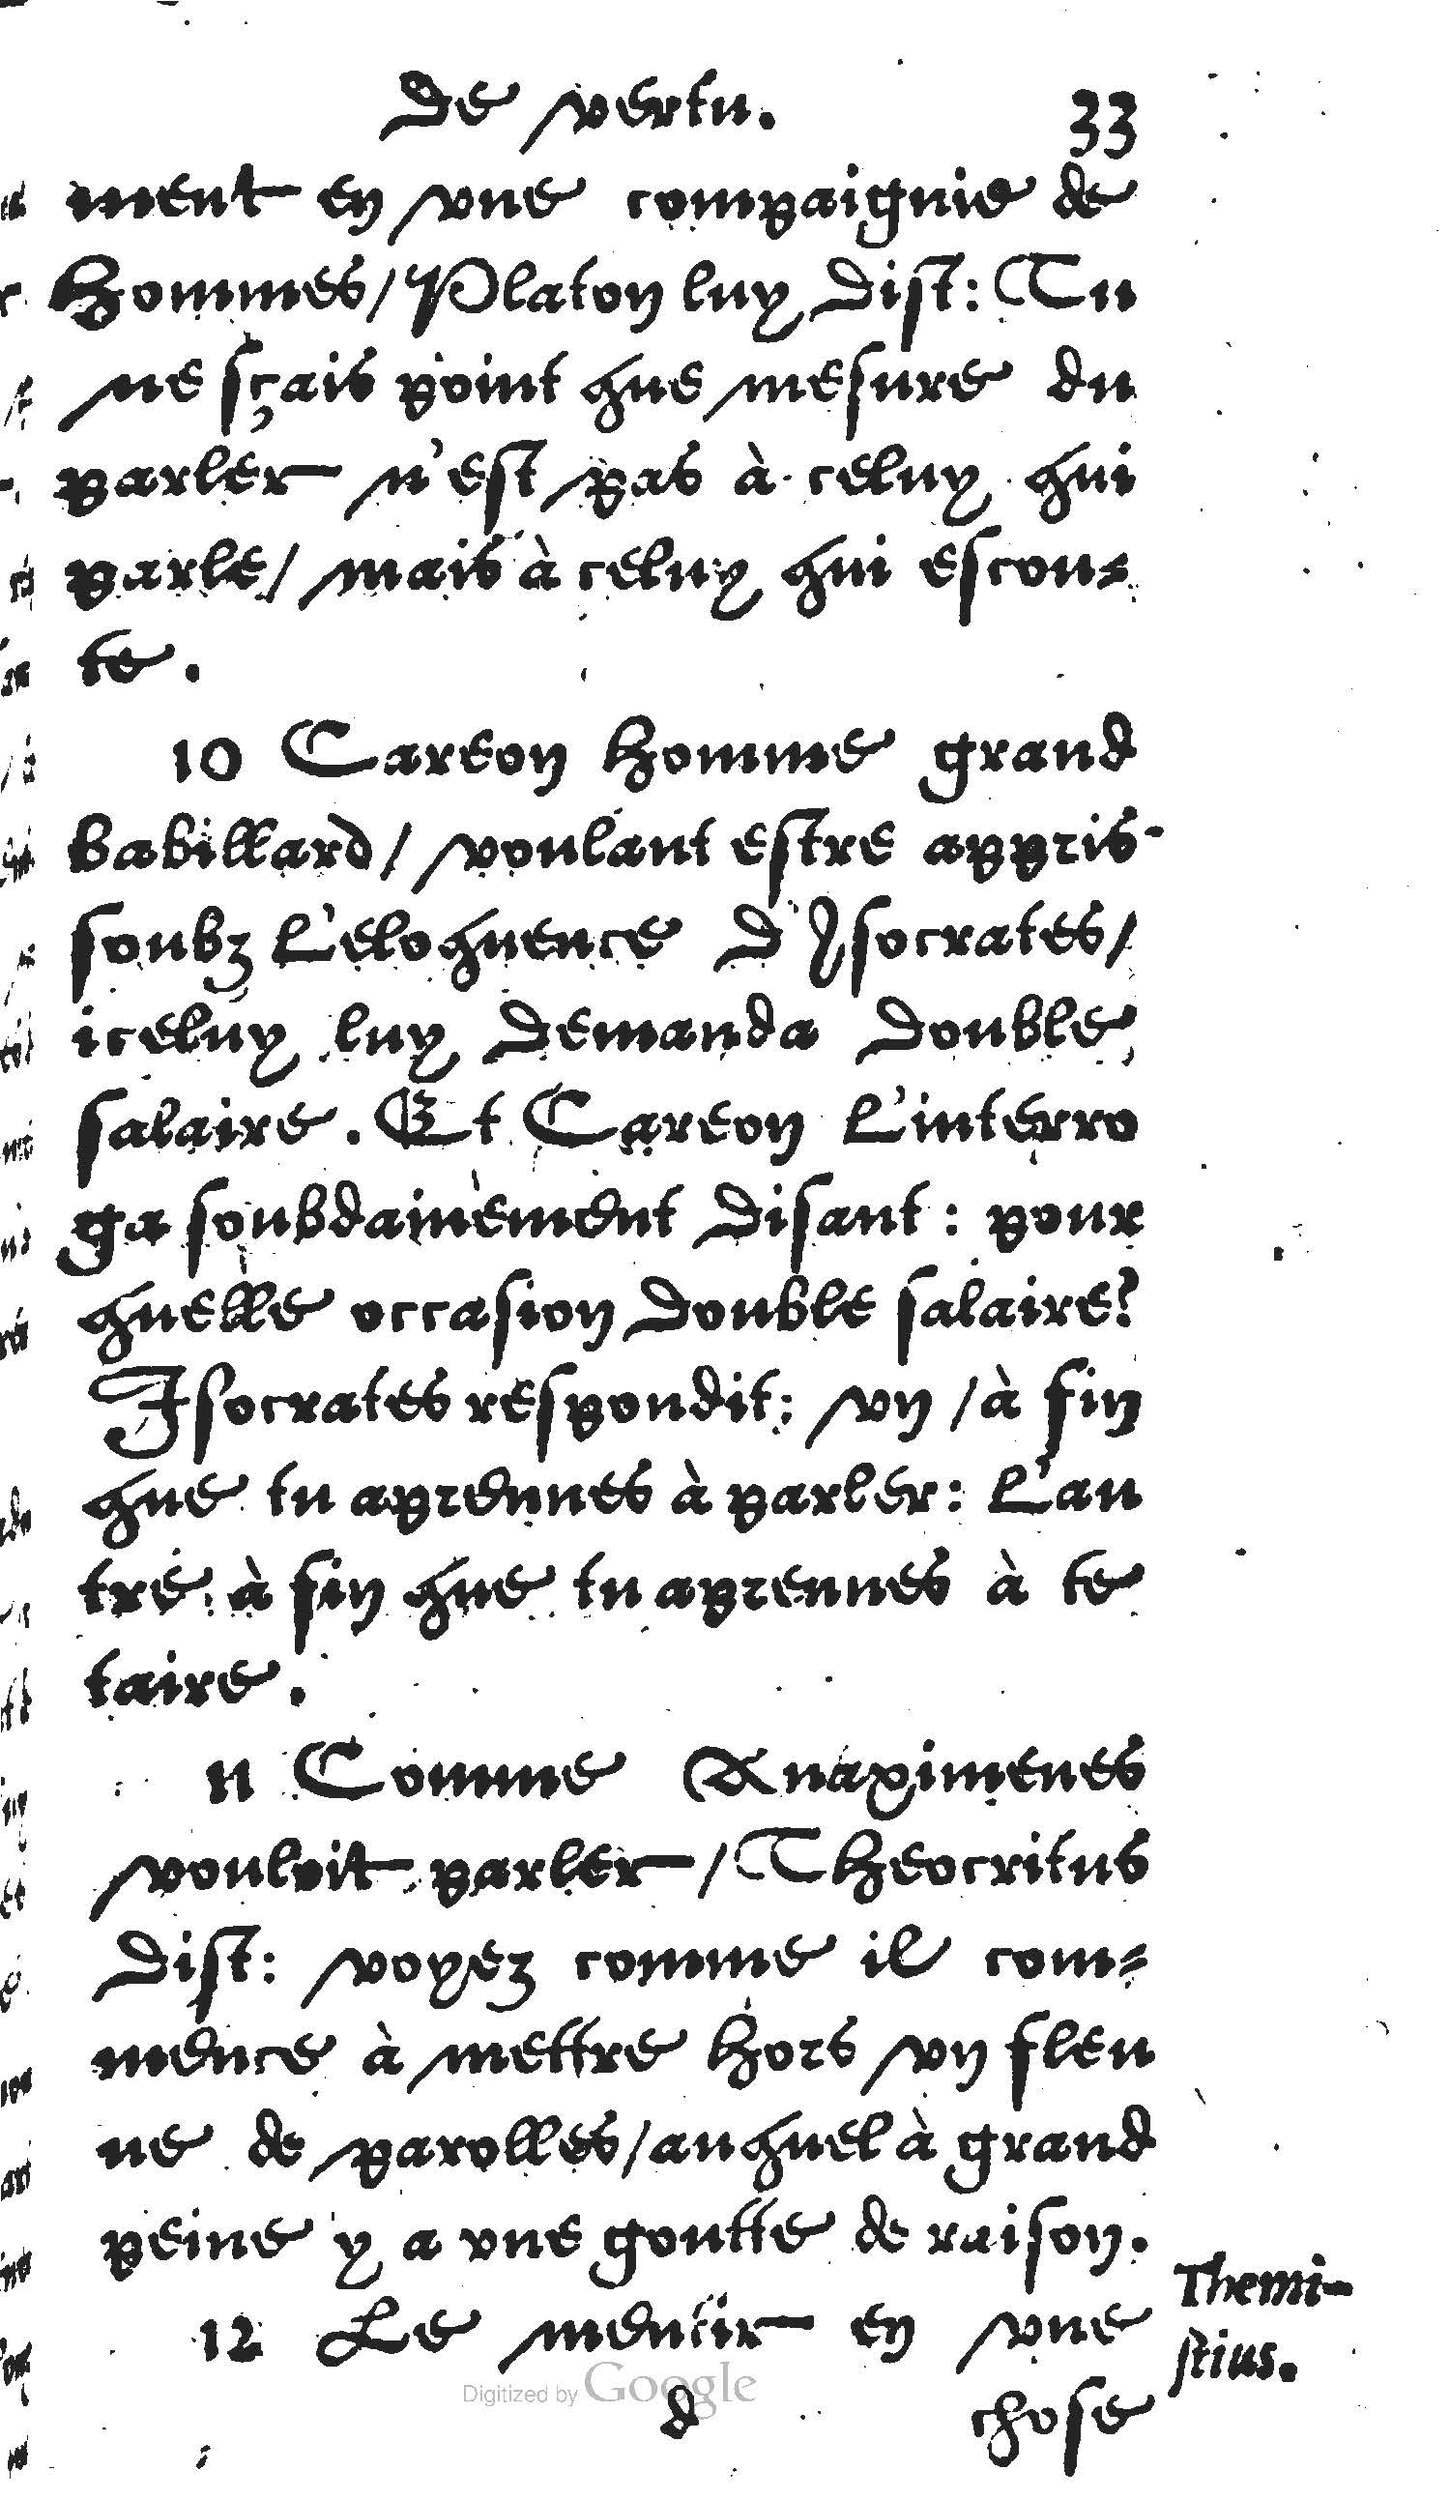 De vertu. 33
ment en vne compaignie de
hommes/ Platon luy dist: Tu
ne sçais point que mesure du
parler n'est pas à celuy qui
parle/ mais à celuy qui escou-
te.
10 Careon homme grand
babillard/ voulant estre appris
soubz l'eloquence d'Isocrates/
iceluy luy demanda double
salaire. Et Careon l'interro
ga soubdainement disant: pour
quelle occasion double salaire?
Isocrates respondit: vn/ à fin
que tu aprennes à parler: l'au
tre à fin que tu aprennes à te
taire.
11 Comme Anaximenes
vouloit parler/ Theocritus
dist: voyez comme il com-
mence à mettre hors vn fleu
ue de parolles/ auquel à grand
peine y a vne goutte de raison.
12 Le mentir en vne
Themi-
stius.
d chose
Digitized by Google